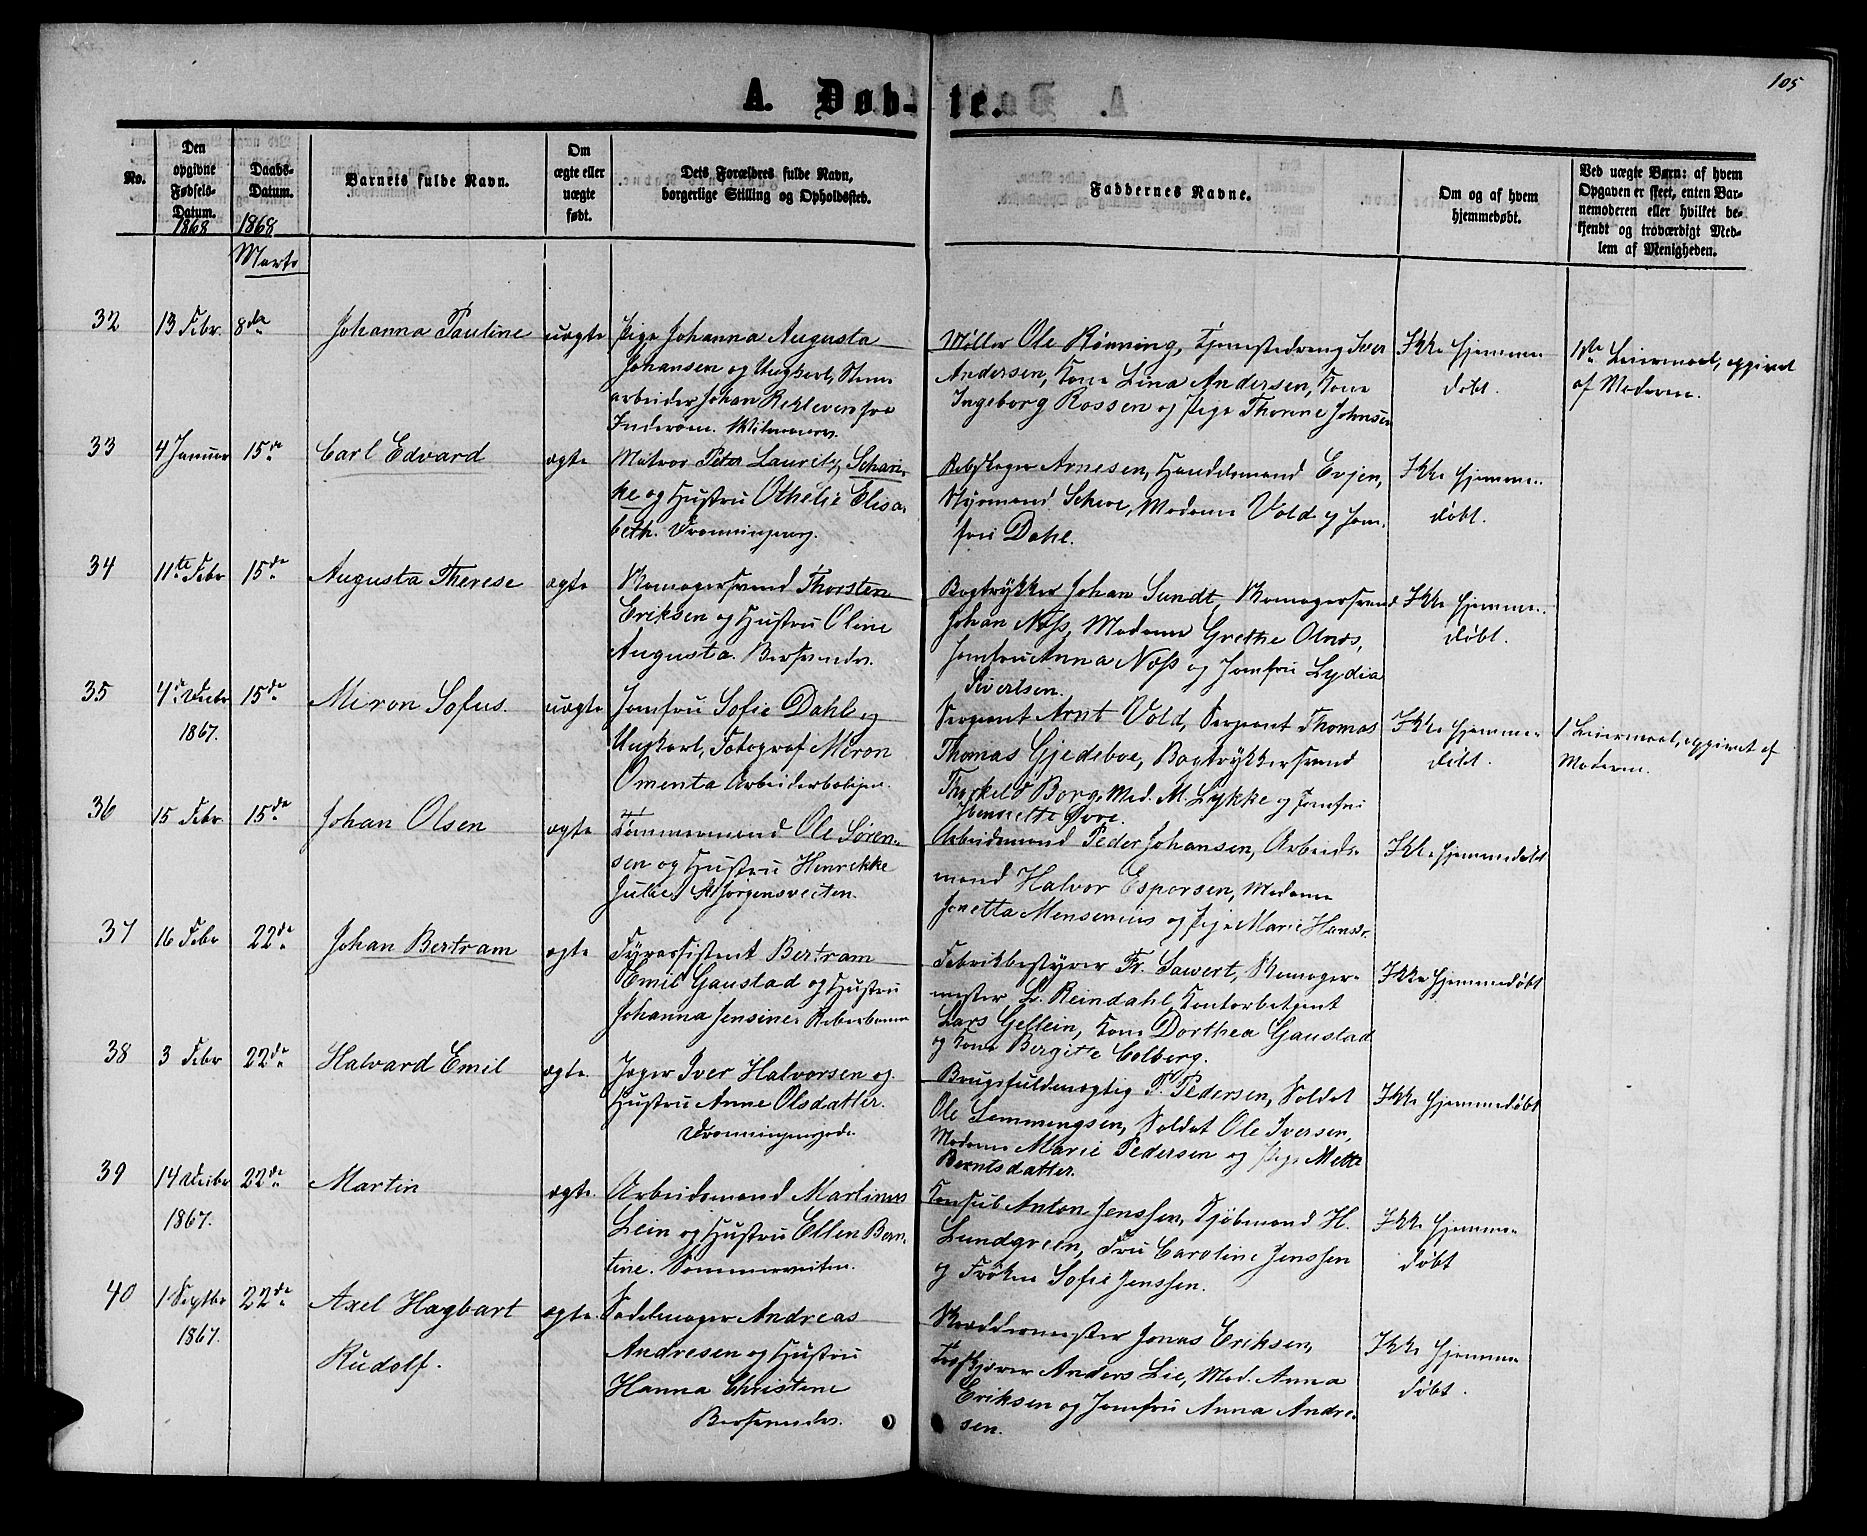 105
A. Døb-te.
No.
Den opgivne Fødsels-Datum.
1868
Daabs-Datum.
1868
Marts
Barnets fulde Navn.
Om ægte eller uægte født.
Dets Forældres fulde Navn, borgerlige Stilling og Opholdssted.
Faddernes Navne.
Om og af hvem hjemmedøbt.
Ved uægte Børn: af hvem Opgaven er skeet, enten Barnemoderen eller hvilket bekjendt og troværdigt Medlem af Menigheden.
32
13 Febr.
8de
Johanna Pauline
uægte
Pige Johanna Augusta
Johansen og Ungkarl, Sten-
arbeider Johan Rekleven fra
Inderøen.
Møller Ole Rönning, Tjenestedreng Iver
Andersen, Kone Lina Andersen, Kone
Ingeborg Rossen og Pige Thorine Johnsen
Ikke hjemme-
døbt.
1ste Leiermaal, opgivet
af Moderen.
33
4 Januar
15de
Carl Edvard
ægte
Matros Peter Lauritz Schari-
ke og Hustru Othelie Elisa-
beth.
Rebslager Arnesen, Handelsmand Evjen,
Styrmand Schive, Madame Vold og Jom-
fru Dahl.
Ikke hjemme-
døbt.
34
11te Febr
15de
Augusta Therese
ægte
Skomagersvend Thorsten
Eriksen og Hustru Oline
Augusta. Bersvendes.
Bogtrykker Johan Sundt, Skomagersvend
Johan Næss, Madame Grethe Olnes,
Jomfru Anna Næss og Jomfru Lydia
Sivertsen.
Ikke hjemme-
døbt.
35
4de Decbr
1867.
15de
Miron Sofus.
uægte
Jomfru Sofie Dahl og
Ungkarl, Fotograf Miron
Omenta Arbeiderboligen.
Sergeant Arnt Vold, Sergeant Thomas
Thomas Gjedeboe, Bogtrykkersvend
Thorkeld Borg, Mad. M. Lykke og Jomfru
Henriette Øvre.
Ikke hjemme-
døbt.
1 Leiermaal, opgivet af
Moderen.
36
15 Febr.
15de
Johan Olsen
ægte
Tømmermand Ole Sören-
sen og Hustru Henrikke
Julie, St Jørgensveiten.
Arbeidsmand Peder Johansen, Arbeids-
mand Halvor Espersen, Madame
Jonetta Mensenius og Pige Marie Hansen
Ikke hjemmedøbt
37
16 Febr
22de
Johan Bertram
ægte
Fyrassistent Bertram
Emil Gaustad og Hustru
Johanna Jensine.
Fabrikbestyrer Fr. Sawert, Skomager-
mester L. Reindahl, Kontorbetjent
Lars Gellein, Kone Dorthea Gaustad
og Kone Bergitte Colberg.
Ikke hjemmedøbt
38
3 Febr
22de
Halvard Emil
ægte.
Jæger Iver Halvorsen og
Hustru Anne Olsdatter.
Dronningensgade.
Brugsfuldmægtig P. Pedersen, Soldat
Ole Lemmengsen, Soldat Ole Iversen,
Madame Marie Pedersen og Pige Mette
Berntsdatter.
Ikke hjemmedøbt
39
14 Decbr
1867.
22de
Martin
ægte.
Arbeidsmand Martinus
Lein og Hustru Ellen Bern-
tine. Sommerveiten.
Konsul Anton Jenssen, Kjöbmand H.
Lundgreen, Fru Caroline Jenssen
og Fröken Sofie Jenssen.
Ikke hjemme-
døbt
40
1 Septbr
1867.
22de
Axel Hagbart
Rudolf.
ægte.
Sadelmager Andreas
Andresen og Hustru
Hanna Christine
Bersvendes.
Skræddermester Jonas Eriksen,
Anders Lie, Mad. Anna
Eriksen og Jomfru Anna Andre-
sen.
Ikke hjemme-
døbt.